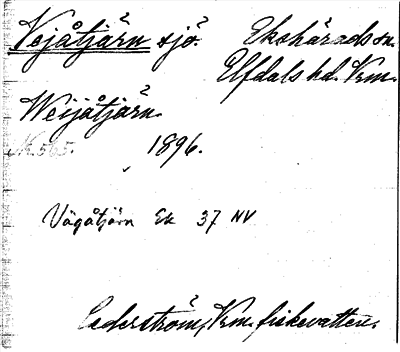 Vejåtjärn sjö. Ekshärads sn.
Elfdals hd. Vrm.
Weijåtjärn.
N. 565. 1896.
Vägåtjärn Ek 37 NV
Cederström, Vrm. fiskevatten.